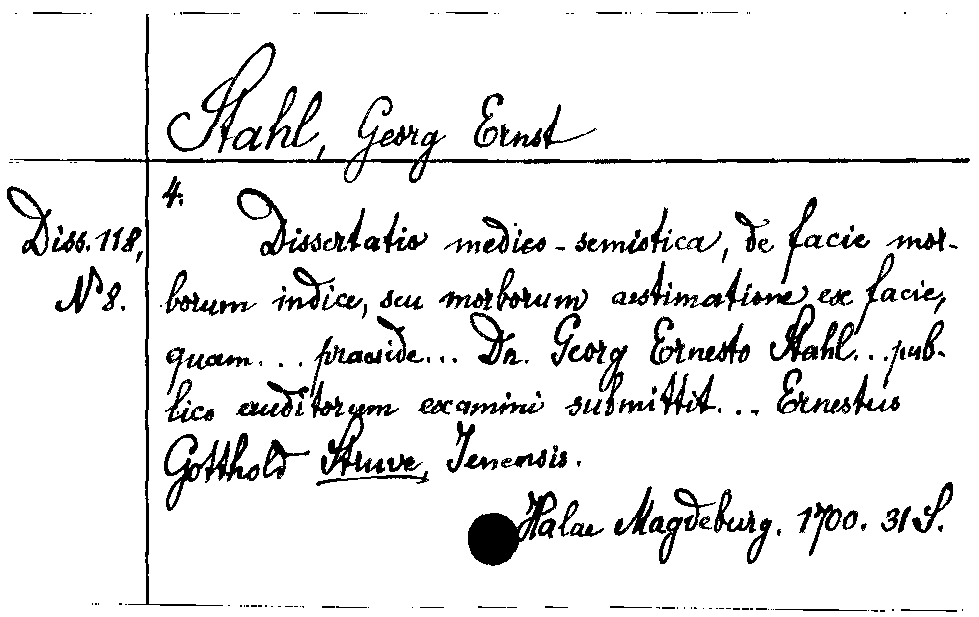 Stahl, Georg Ernst
4.
Diss. 118,
N 8.
Dissertatio medico-semiotica, de facie mor-
borum indice, seu morborum aestimatione ex facie,
quam... praeside... Dn. Georg Ernesto Stahl... pub-
lico auditorum examini submittit... Ernestus
Gotthold Struve, Jenensis.
Halae Magdeburg. 1700. 31 S.